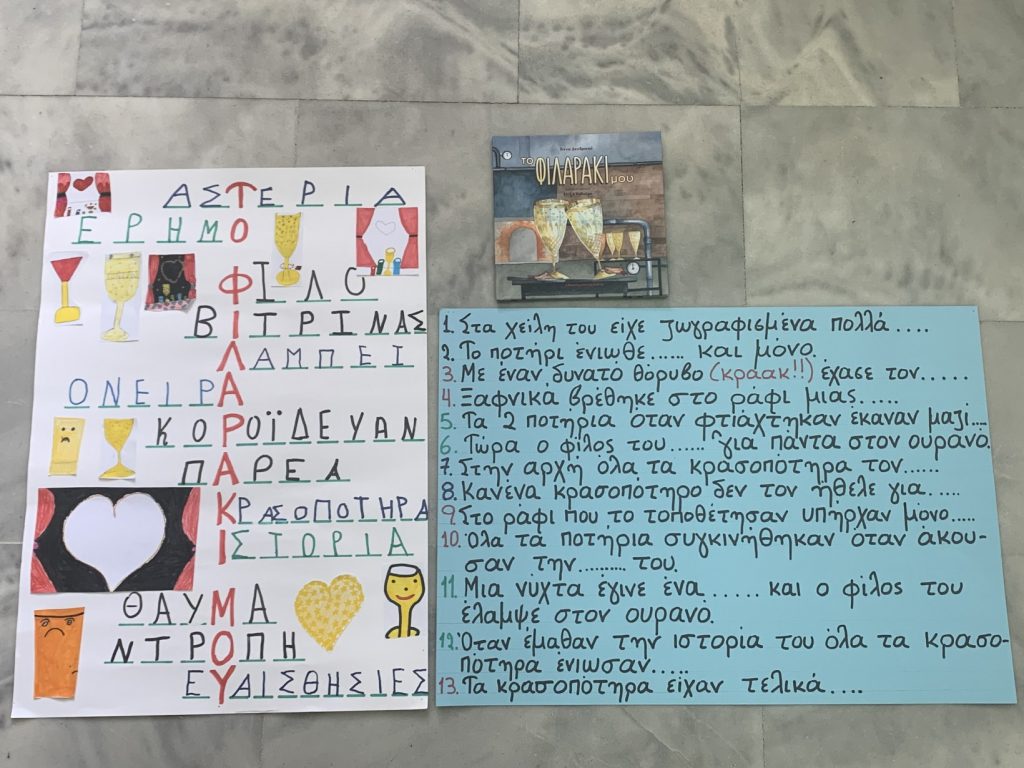 ΑΣΤΕΡΙΑ
ΕΡΗΜΟ
ΦΙΛΟ
ΒΙΤΡΙΝΑΣ
ΛΑΜΠΕΙ
ΟΝΕΙΡΑ
ΚΟΡΟΪΔΕΥΑΝ
ΠΑΡΕΑ
ΚΡΑΣΟΠΟΤΗΡΑ
ΙΣΤΟΡΙΑ
ΘΑΥΜΑ
ΝΤΡΟΠΗ
ΕΥΑΙΣΘΗΣΙΕΣ
ΤΟ ΦΙΛΑΡΑΚΙ μου
1. Στα χείλη του είχε ζωγραφισμένα πολλά....
2. Το ποτήρι ένιωθε...... και μόνο.
3. Με έναν δυνατό θόρυβο (κράακ!!) έχασε τον.....
4. Ξαφνικά βρέθηκε στο ράφι μιας.....
5. Τα 2 ποτήρια όταν φτιάχτηκαν έκαναν μαζί....
6. Τώρα ο φίλος του...... για πάντα στον ουρανό.
7. Στην αρχή όλα τα κρασοπότηρα τον......
8. Κανένα κρασοπότηρο δεν τον ήθελε για.....
9. Στο ράφι που το τοποθέτησαν υπήρχαν μόνο.....
10. Όλα τα ποτήρια συγκινήθηκαν όταν άκου-
σαν την......... του.
11. Μια νύχτα έγινε ένα ...... και ο φίλος του
έλαμψε στον ουρανό.
12. Όταν έμαθαν την ιστορία του όλα τα κρασο-
πότηρα ένιωσαν.....
13. Τα κρασοπότηρα είχαν τελικά....